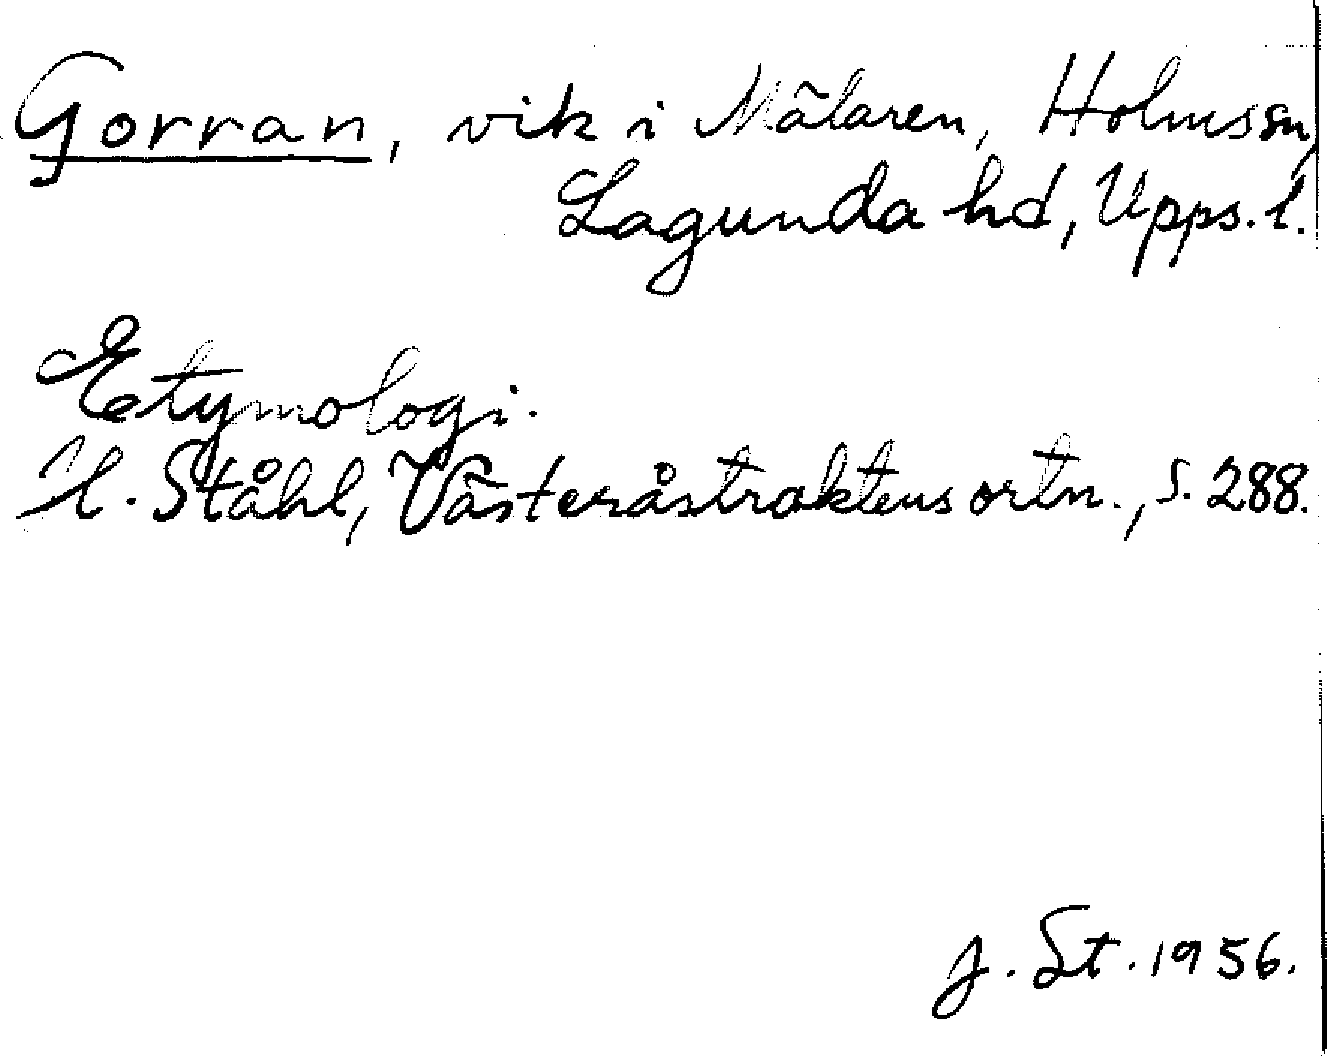 Gorran, vik i Mälaren, Holms sn,
Lagunda hd, Upps. l.
Etymologi.
H. Ståhl, Västeråstraktens ortn., s. 288.
J. St. 1956.